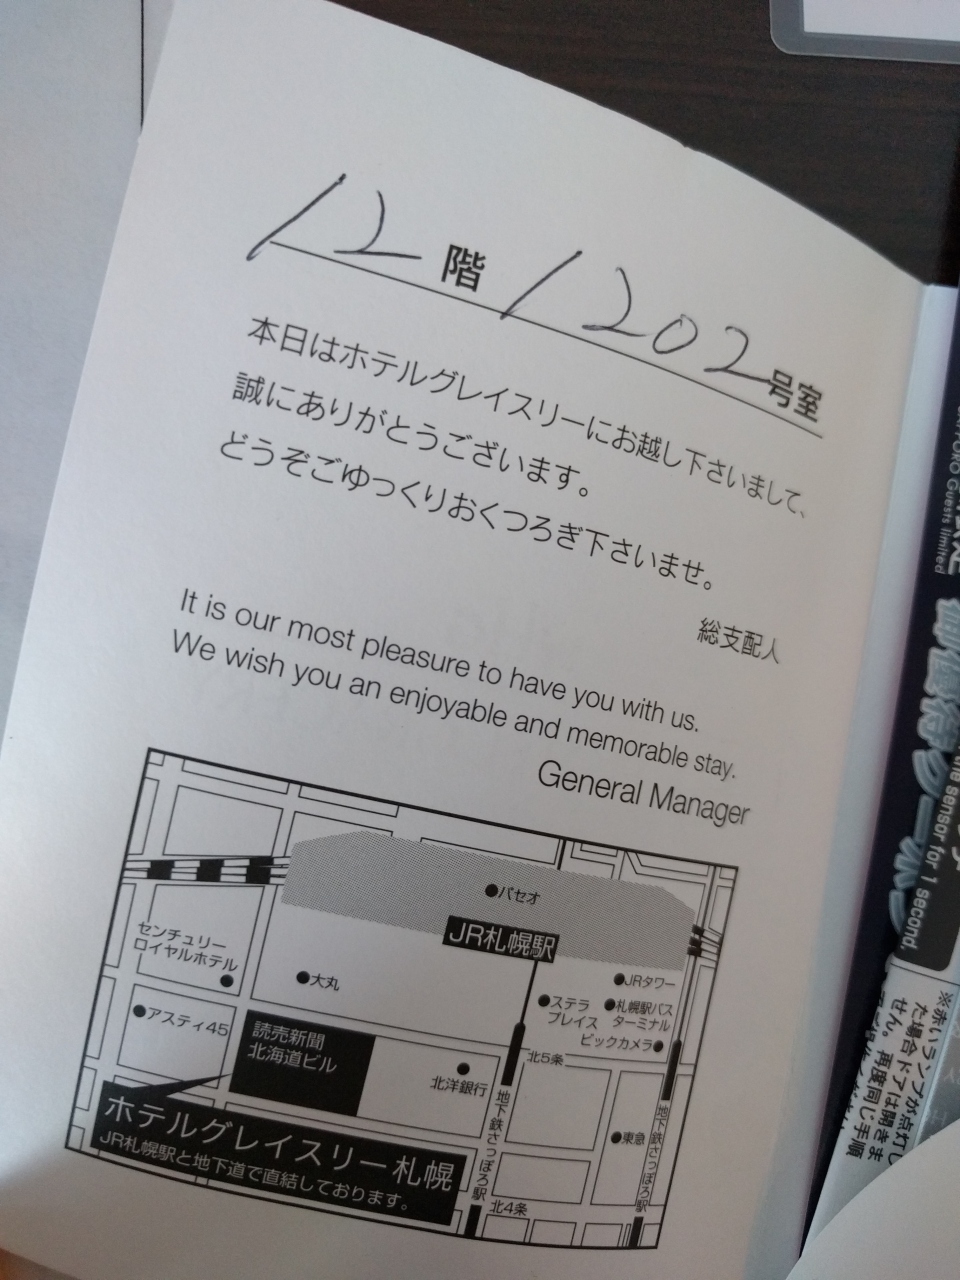 12階 1202号室
本日はホテルグレイスリーにお越し下さいまして、
誠にありがとうございます。
どうぞごゆっくりおくつろぎ下さいませ。
総支配人
It is our most pleasure to have you with us.
We wish you an enjoyable and memorable stay.
General Manager
パセオ
JR札幌駅
センチュリー
ロイヤルホテル
大丸
JRタワー
ステラ
プレイス
札幌駅バス
ターミナル
ビックカメラ
アスティ45
読売新聞
北海道ビル
北洋銀行
北5条
地下鉄さっぽろ駅
東急
地下鉄さっぽろ駅
北4条
ホテルグレイスリー札幌
JR札幌駅と地下道で直結しております。
Guests limited
the sensor for 1 second.
※赤いランプが点灯し
た場合ドアは開きま
せん。再度同じ手順